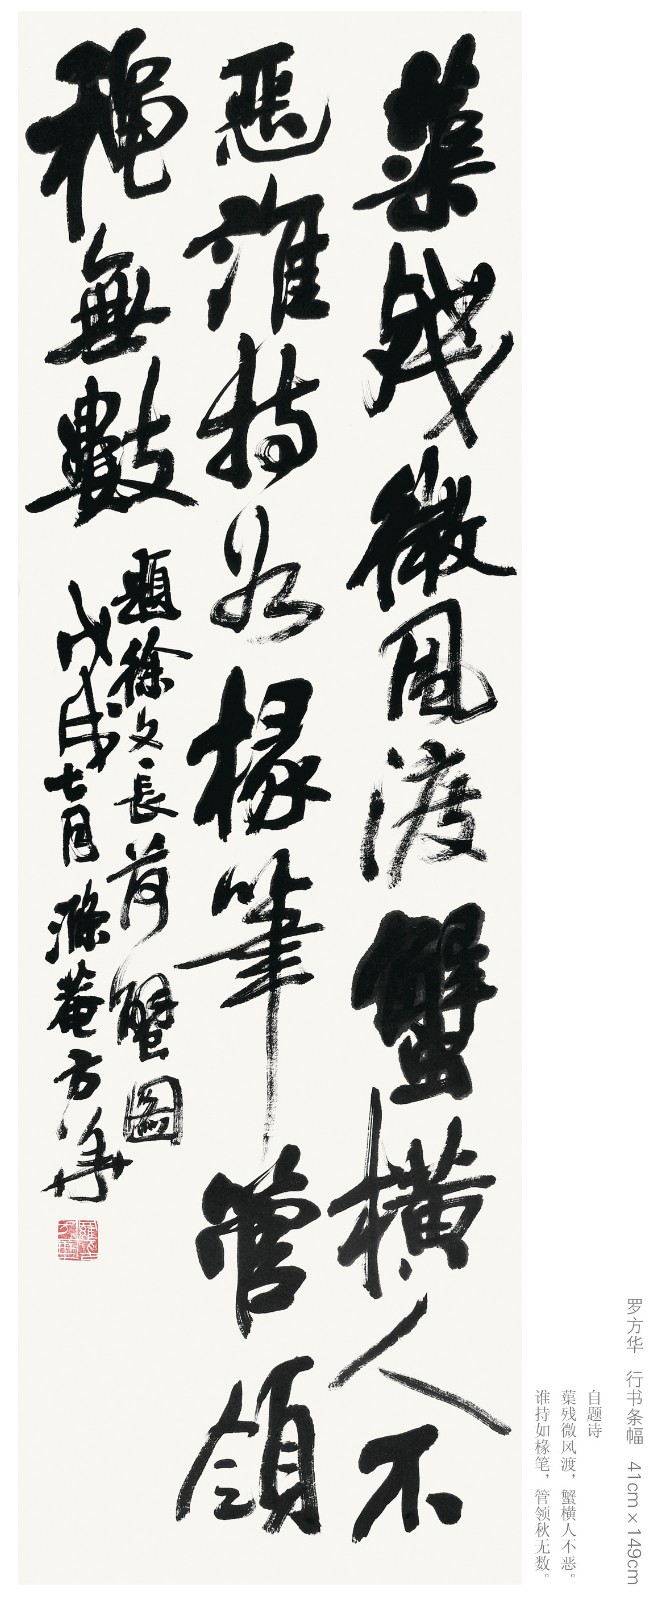 蕖残微風渡蟹橫人不
惡誰持如椽筆管領
穐無數
題徐文長荷蟹圖
戊戌七月滌菴方華
罗方华 行书条幅 41cm×149cm
自题诗
蕖残微风渡，蟹横人不恶。
谁持如椽笔，管领秋无数。